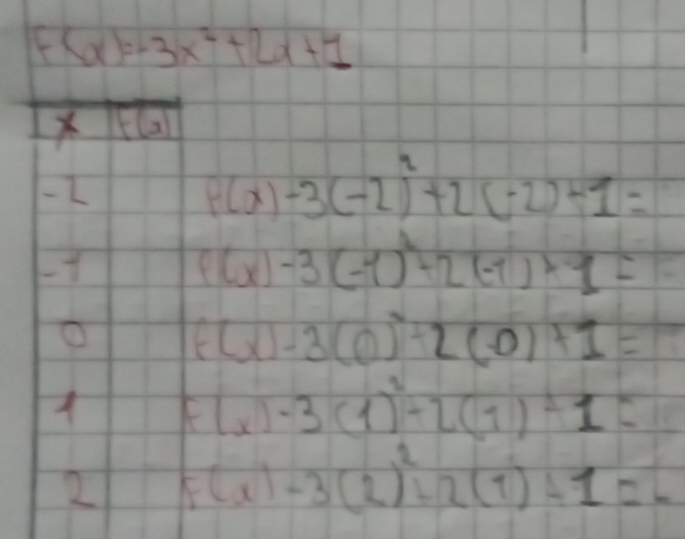 F(x)=-3x²+2x+1
x F(x)
-2 f(x)-3(-2)²+2(-2)+1=
-1 f(x)-3(-1)²+2(-1)+1=
0 f(x)-3(0)²+2(-0)+1=
1 F(x)-3(1)²+2(1)+1=
2 F(x)-3(2)²+2(1)+1=-